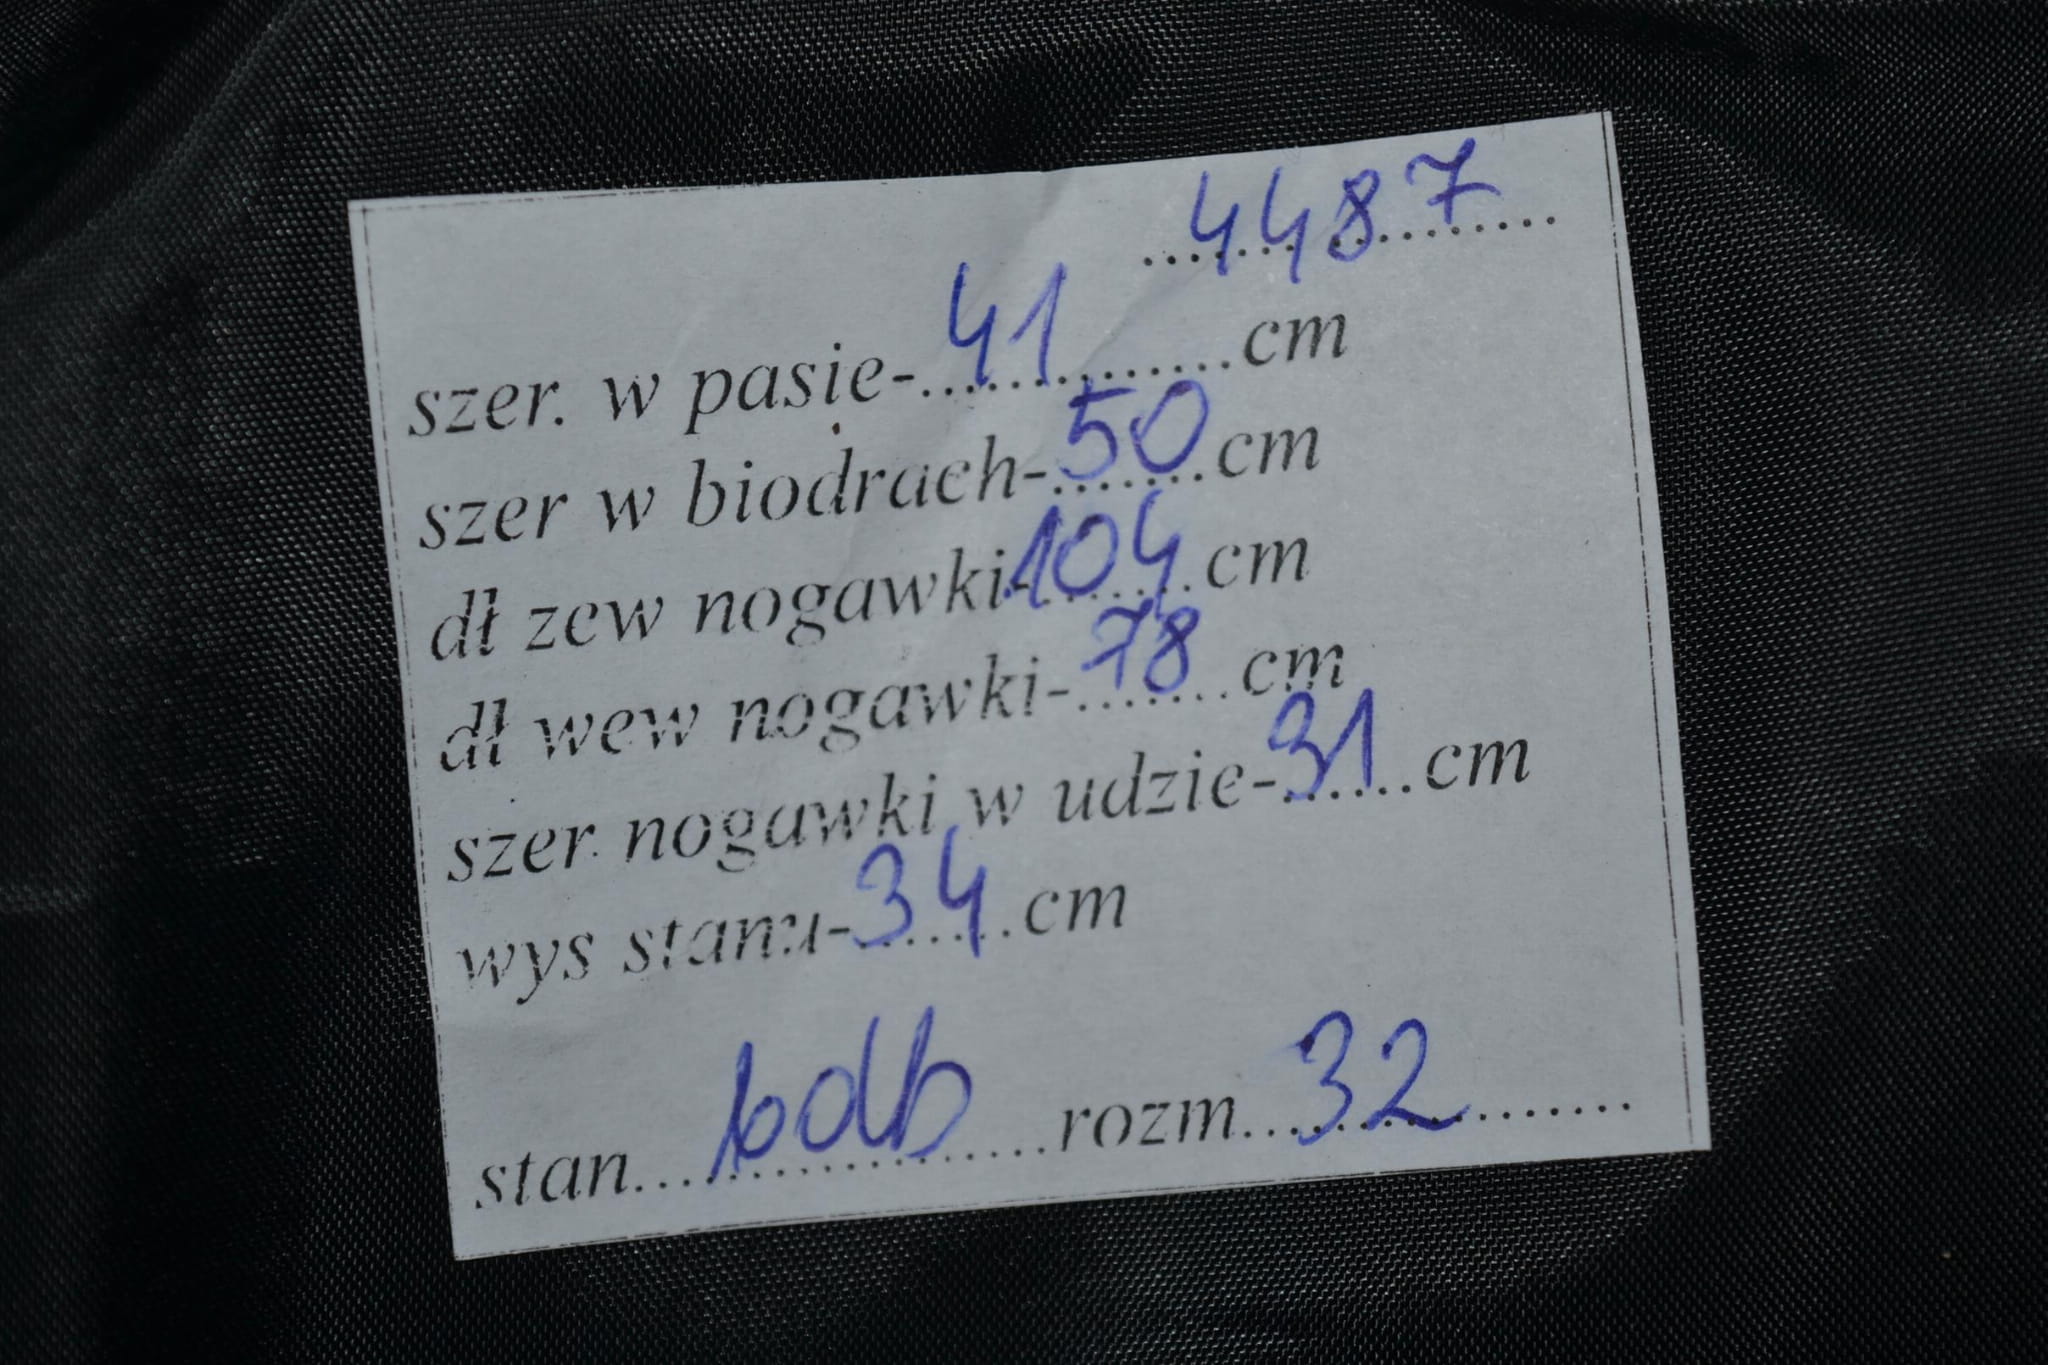 4487
szer. w pasie-41cm
szer w biodrach-50cm
dł zew nogawki-104cm
dł wew nogawki-78cm
szer nogawki w udzie-31cm
wys stanu-34cm
stan...bdb...rozm...32...